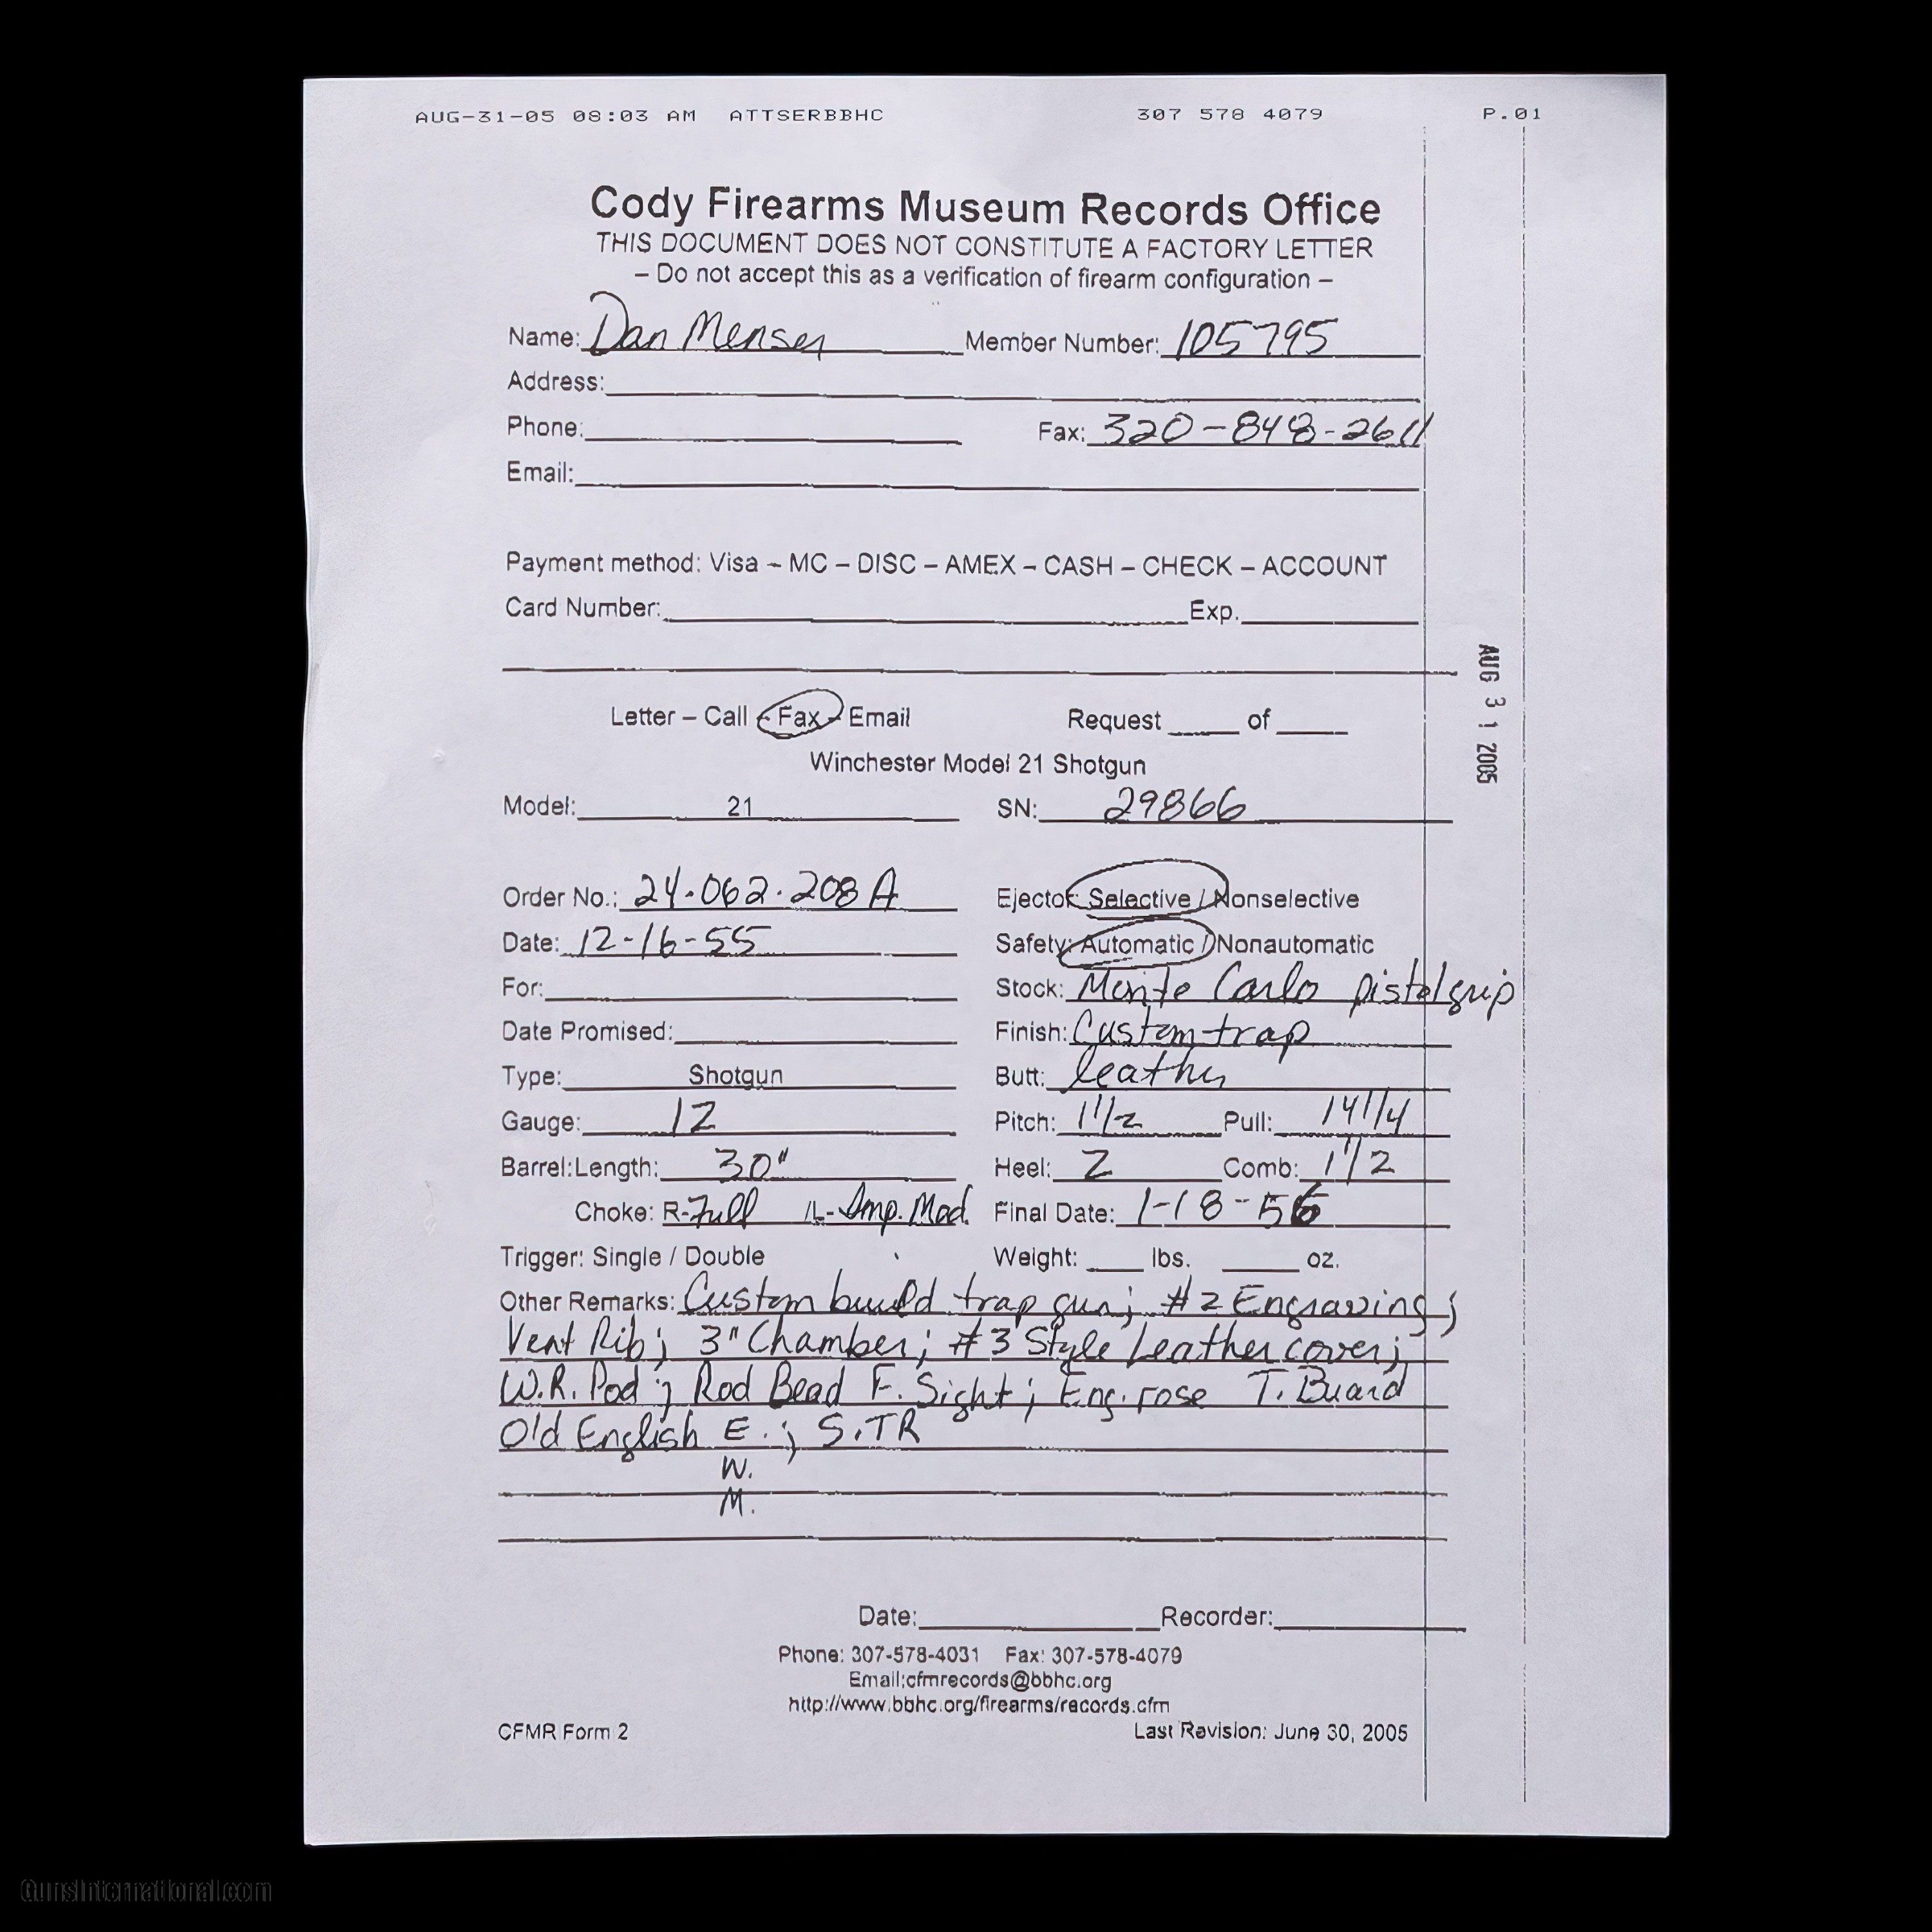 AUG-31-05 08:03 AM ATTSERBBHC 307 578 4079 P.01
Cody Firearms Museum Records Office
THIS DOCUMENT DOES NOT CONSTITUTE A FACTORY LETTER
– Do not accept this as a verification of firearm configuration –
Name: Dan Menser Member Number: 105795
Address:
Phone: Fax: 320-848-2611
Email:
Payment method: Visa – MC – DISC – AMEX – CASH – CHECK – ACCOUNT
Card Number: Exp.
AUG 31 2005
Letter – Call – Fax – Email Request of
Winchester Model 21 Shotgun
Model: 21 SN: 29866
Order No.: 24-062-208 A Ejector: Selective / Nonselective
Date: 12-16-55 Safety: Automatic / Nonautomatic
For: Stock: Monte Carlo pistol grip
Date Promised: Finish: Custom trap
Type: Shotgun Butt: leather
Gauge: 12 Pitch: 1 1/2 Pull: 14 1/4
Barrel: Length: 30" Heel: 2 Comb: 1 1/2
Choke: R-Full /L-Imp. Mod. Final Date: 1-18-56
Trigger: Single / Double Weight: lbs. oz.
Other Remarks: Custom build trap gun; #2 Engraving;
Vent Rib; 3" Chamber; #3 Style Leather cover;
W.R. Pad; Red Bead F. Sight; Eng. rose T. Guard
Old English E.; S.TR
W.
M.
Date: Recorder:
Phone: 307-578-4031 Fax: 307-578-4079
Email:cfmrecords@bbhc.org
http://www.bbhc.org/firearms/records.cfm
CFMR Form 2 Last Revision: June 30, 2005
GunsInternational.com